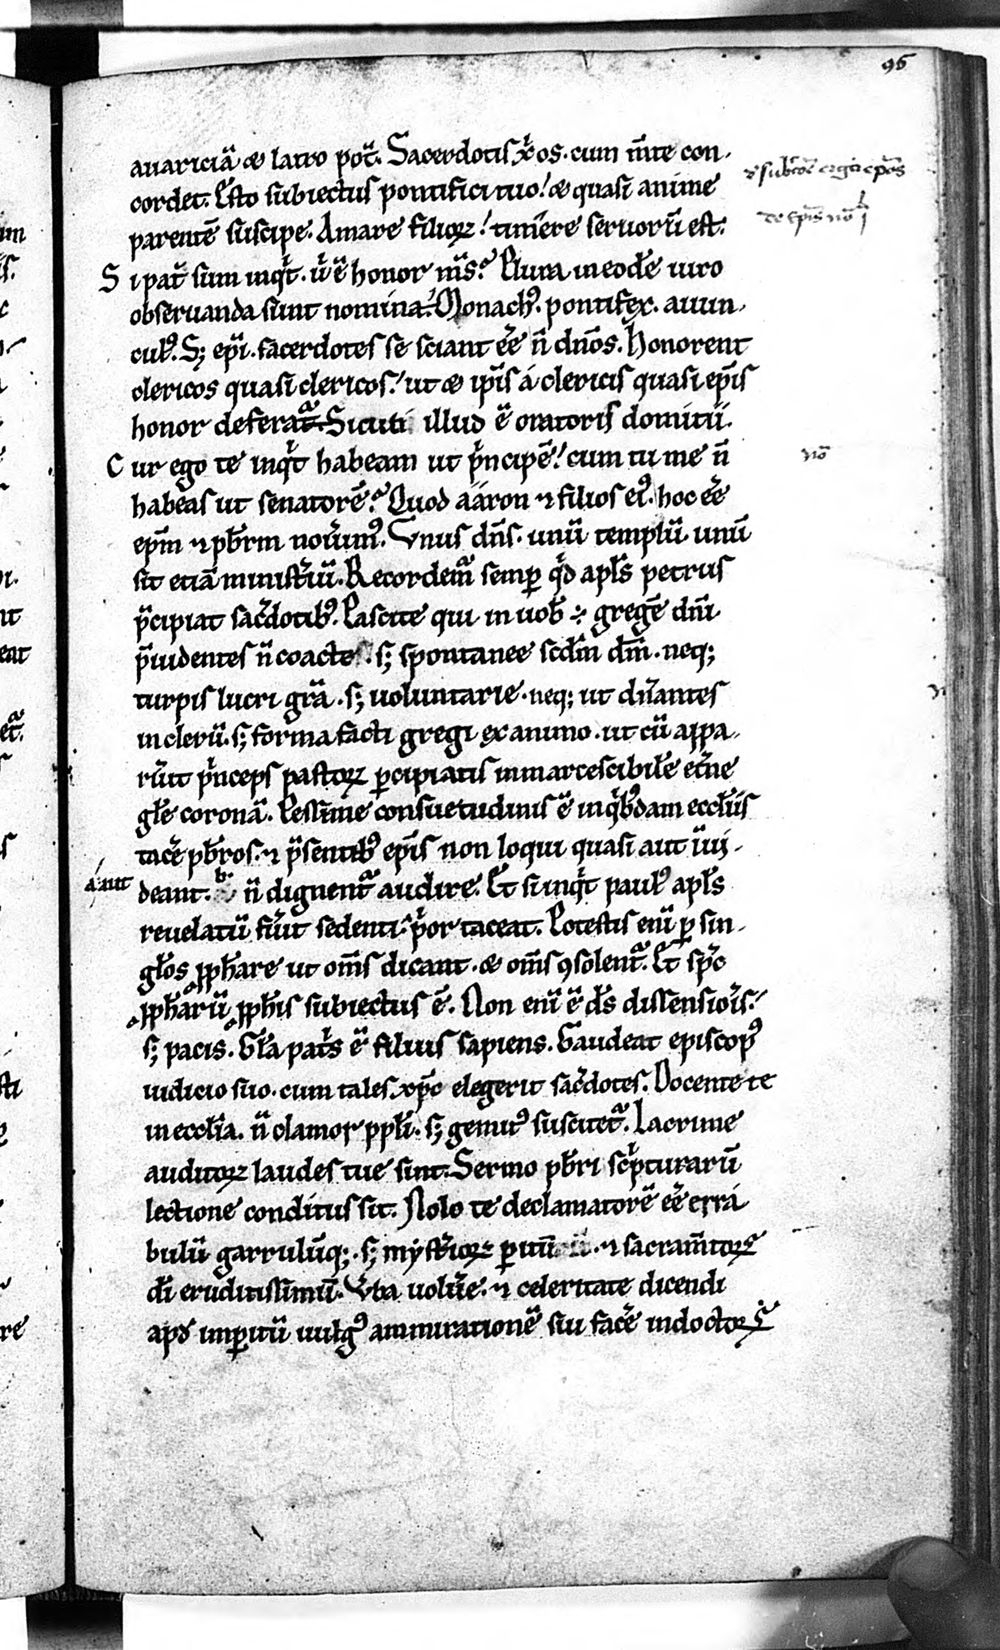 96
auariciā & latro pot̄. Sacerdotis x̄p̄i os. cum m̄te con-
cordet. Esto subiectus pontifici tuo. & quasi anime
parentē suscipe. Amare filioꝝ. timere seruorū est.
Si pat̄ sum inqͥt. vͥ ē honor m̄s? Plura in eodē uiro
obseruanda sunt nomina. Monachꝰ. pontifex. auun-
culꝰ. Sꝫ ep̄i. sacerdotes se sciant eē n̄ dn̄os. Honorent
clericos quasi clericos. ut & ip̄is á clericis quasi ep̄is
honor deferat̄. Sicuti illud ē oratoris domitii.
Cur ego te inqͥt habeam ut pͥncipē. cum tu me n̄
habeas ut senatorē? Quod aáron ⁊ filios eiꝰ. hoc eē
ep̄m ⁊ p̄brm nouͥimꝰ. Vnus dn̄s. unū templū. unū
sit etiā ministͥiū. Recordem̄ semp̱ qͥd apl̄s petrus
p̄cipiat sac̄dotibꝰ. Pascite qui in uob̄ ÷ gregē dn̄i
p̄uidentes n̄ coacte. sꝫ spontanee scdm̄ dm̄. neqꝫ
turpis lucri gr̄a. sꝫ uoluntarie. neqꝫ ut dn̄antes
in clerū. sꝫ forma facti gregi ex animo. ut cū appa-
rūit pͥnceps pastoꝝ p̱cipiatis inmarcescibilē et̄ne
gl̄e coronā. Pessime consuetudinis ē inqͥbꝰdam eccl̄iis
tacē p̄bros. ⁊ p̄sentibꝰ ep̄is non loqui quasi aut īui-
deant. n̄ dignent̄ audire. Et si inqͥt paulꝰ apl̄s
reuelatū fūit sedenti. pͥor taceat. Potestis enī p̱ sin-
gl̄os ꝓph̄are ut om̄s dicant. & om̄s ꝯsolent̄. Et sp̄c
ꝓph̄arū ꝓph̄is subiectus ē. Non enī ē d̄s dissensiōis.
sꝫ pacis. Gl̄a pat̄s ē filius sapiens. Gaudeat episcopꝰ
iudicio suo. cum tales xp̄c elegerit sac̄dotes. Docente te
in eccl̄ia. n̄ clamor ppl̄i. sꝫ gemitꝰ suscitet̄. Lacrime
auditoꝝ laudes tue sint. Sermo p̄bri scͥpturarū
lectione conditus sit. Nolo te declamatorē eē et rra
bulū garrulūqꝫ. sꝫ mystͥioꝝ p̱itū. ⁊ sacram̄toꝝ
dī eruditissimū. V̄ba uolūe. ⁊ celeritate dicendi
apd̄ imp̱itū uulgꝰ ammirationē sui facē indoctoꝝ
nō
á aut